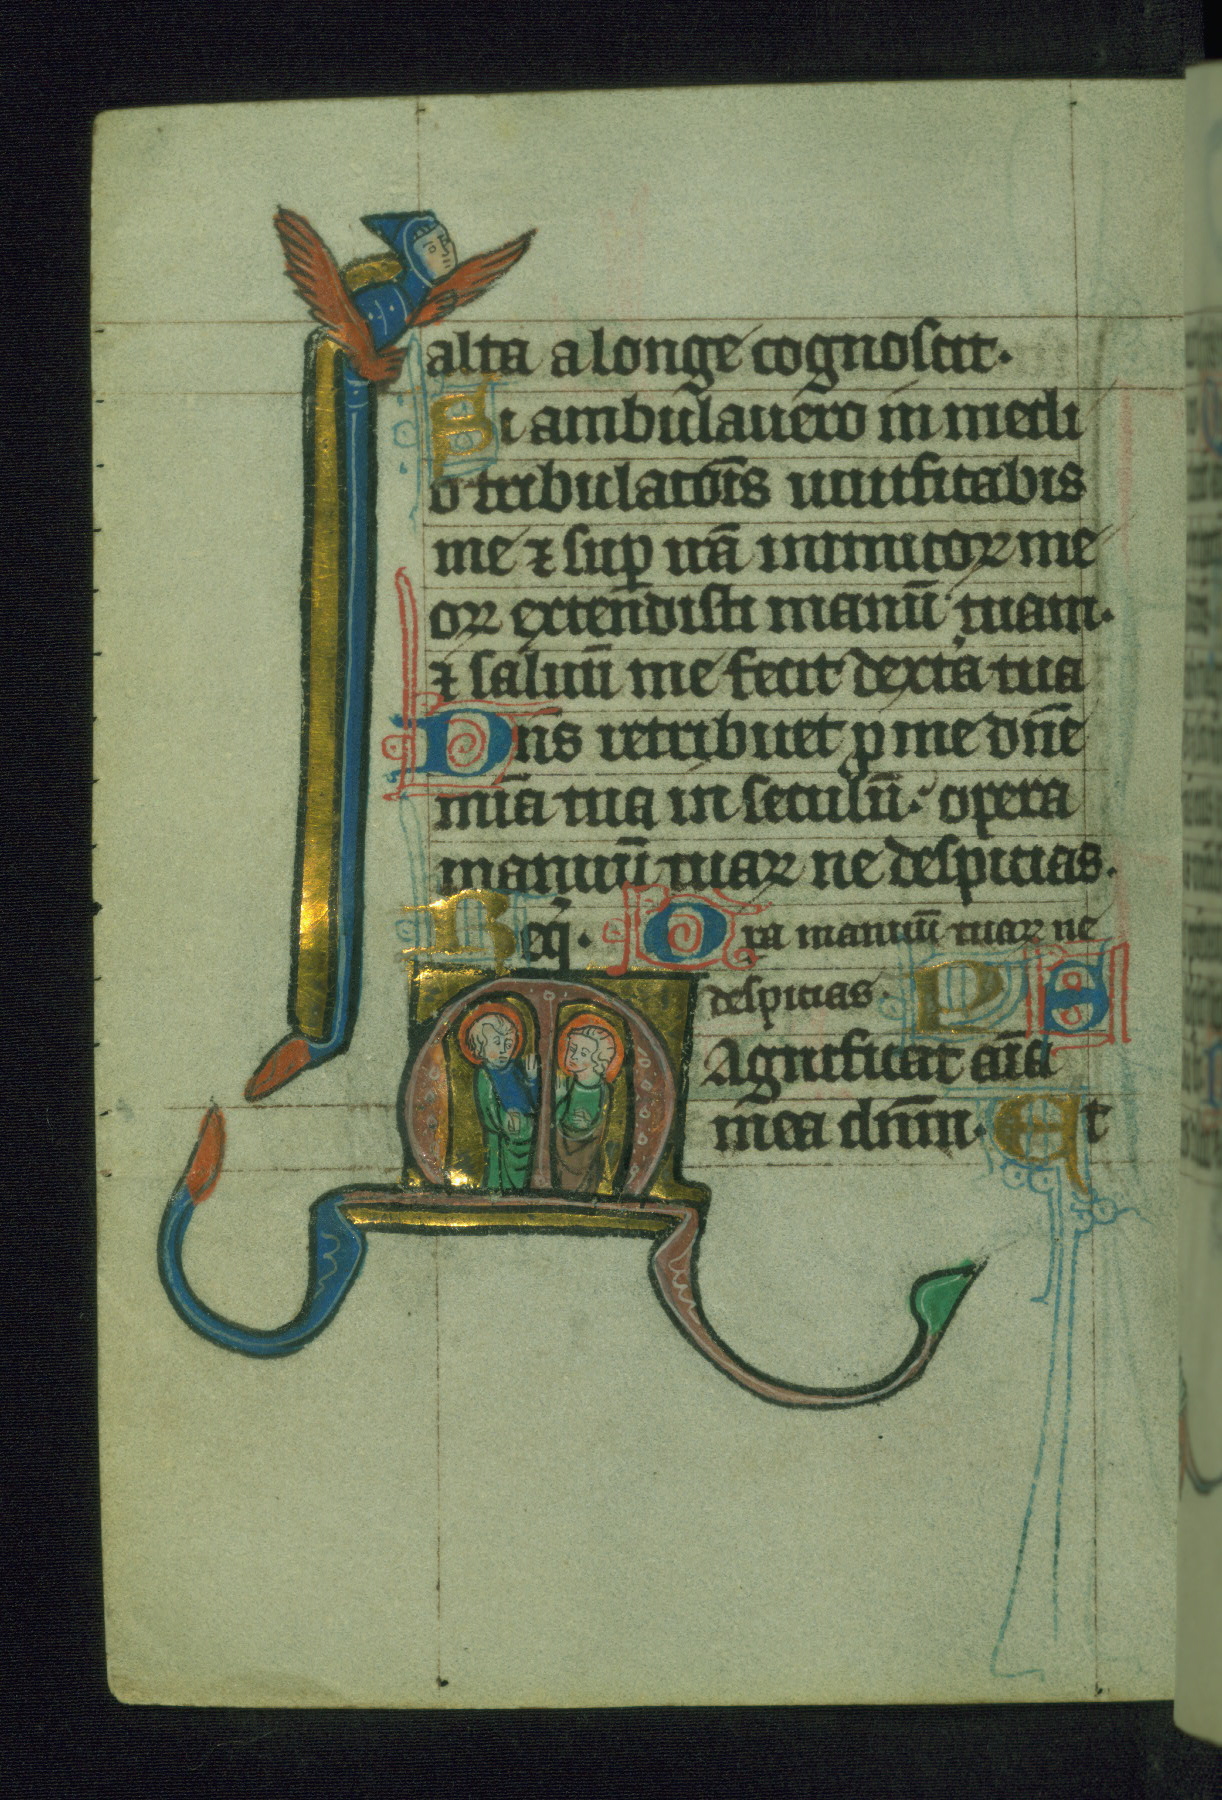 alta a longe cognoscit.
Si ambulauero in medi
o tribulacōīs uiuificabis
me ⁊ suꝑ irā inimicoꝝ me
oꝝ extendisti manū tuam.
⁊ saluū me fecit dextͣa tua
Dn̄s retribuet ꝓ me dn̄e
mīa tua in seculū. opera
manuū tuaꝝ ne despicias.
Req̄. Oꝑa manuū tuaꝝ ne
despicias. P S
Magnificat aīa
mea dn̄m. Et